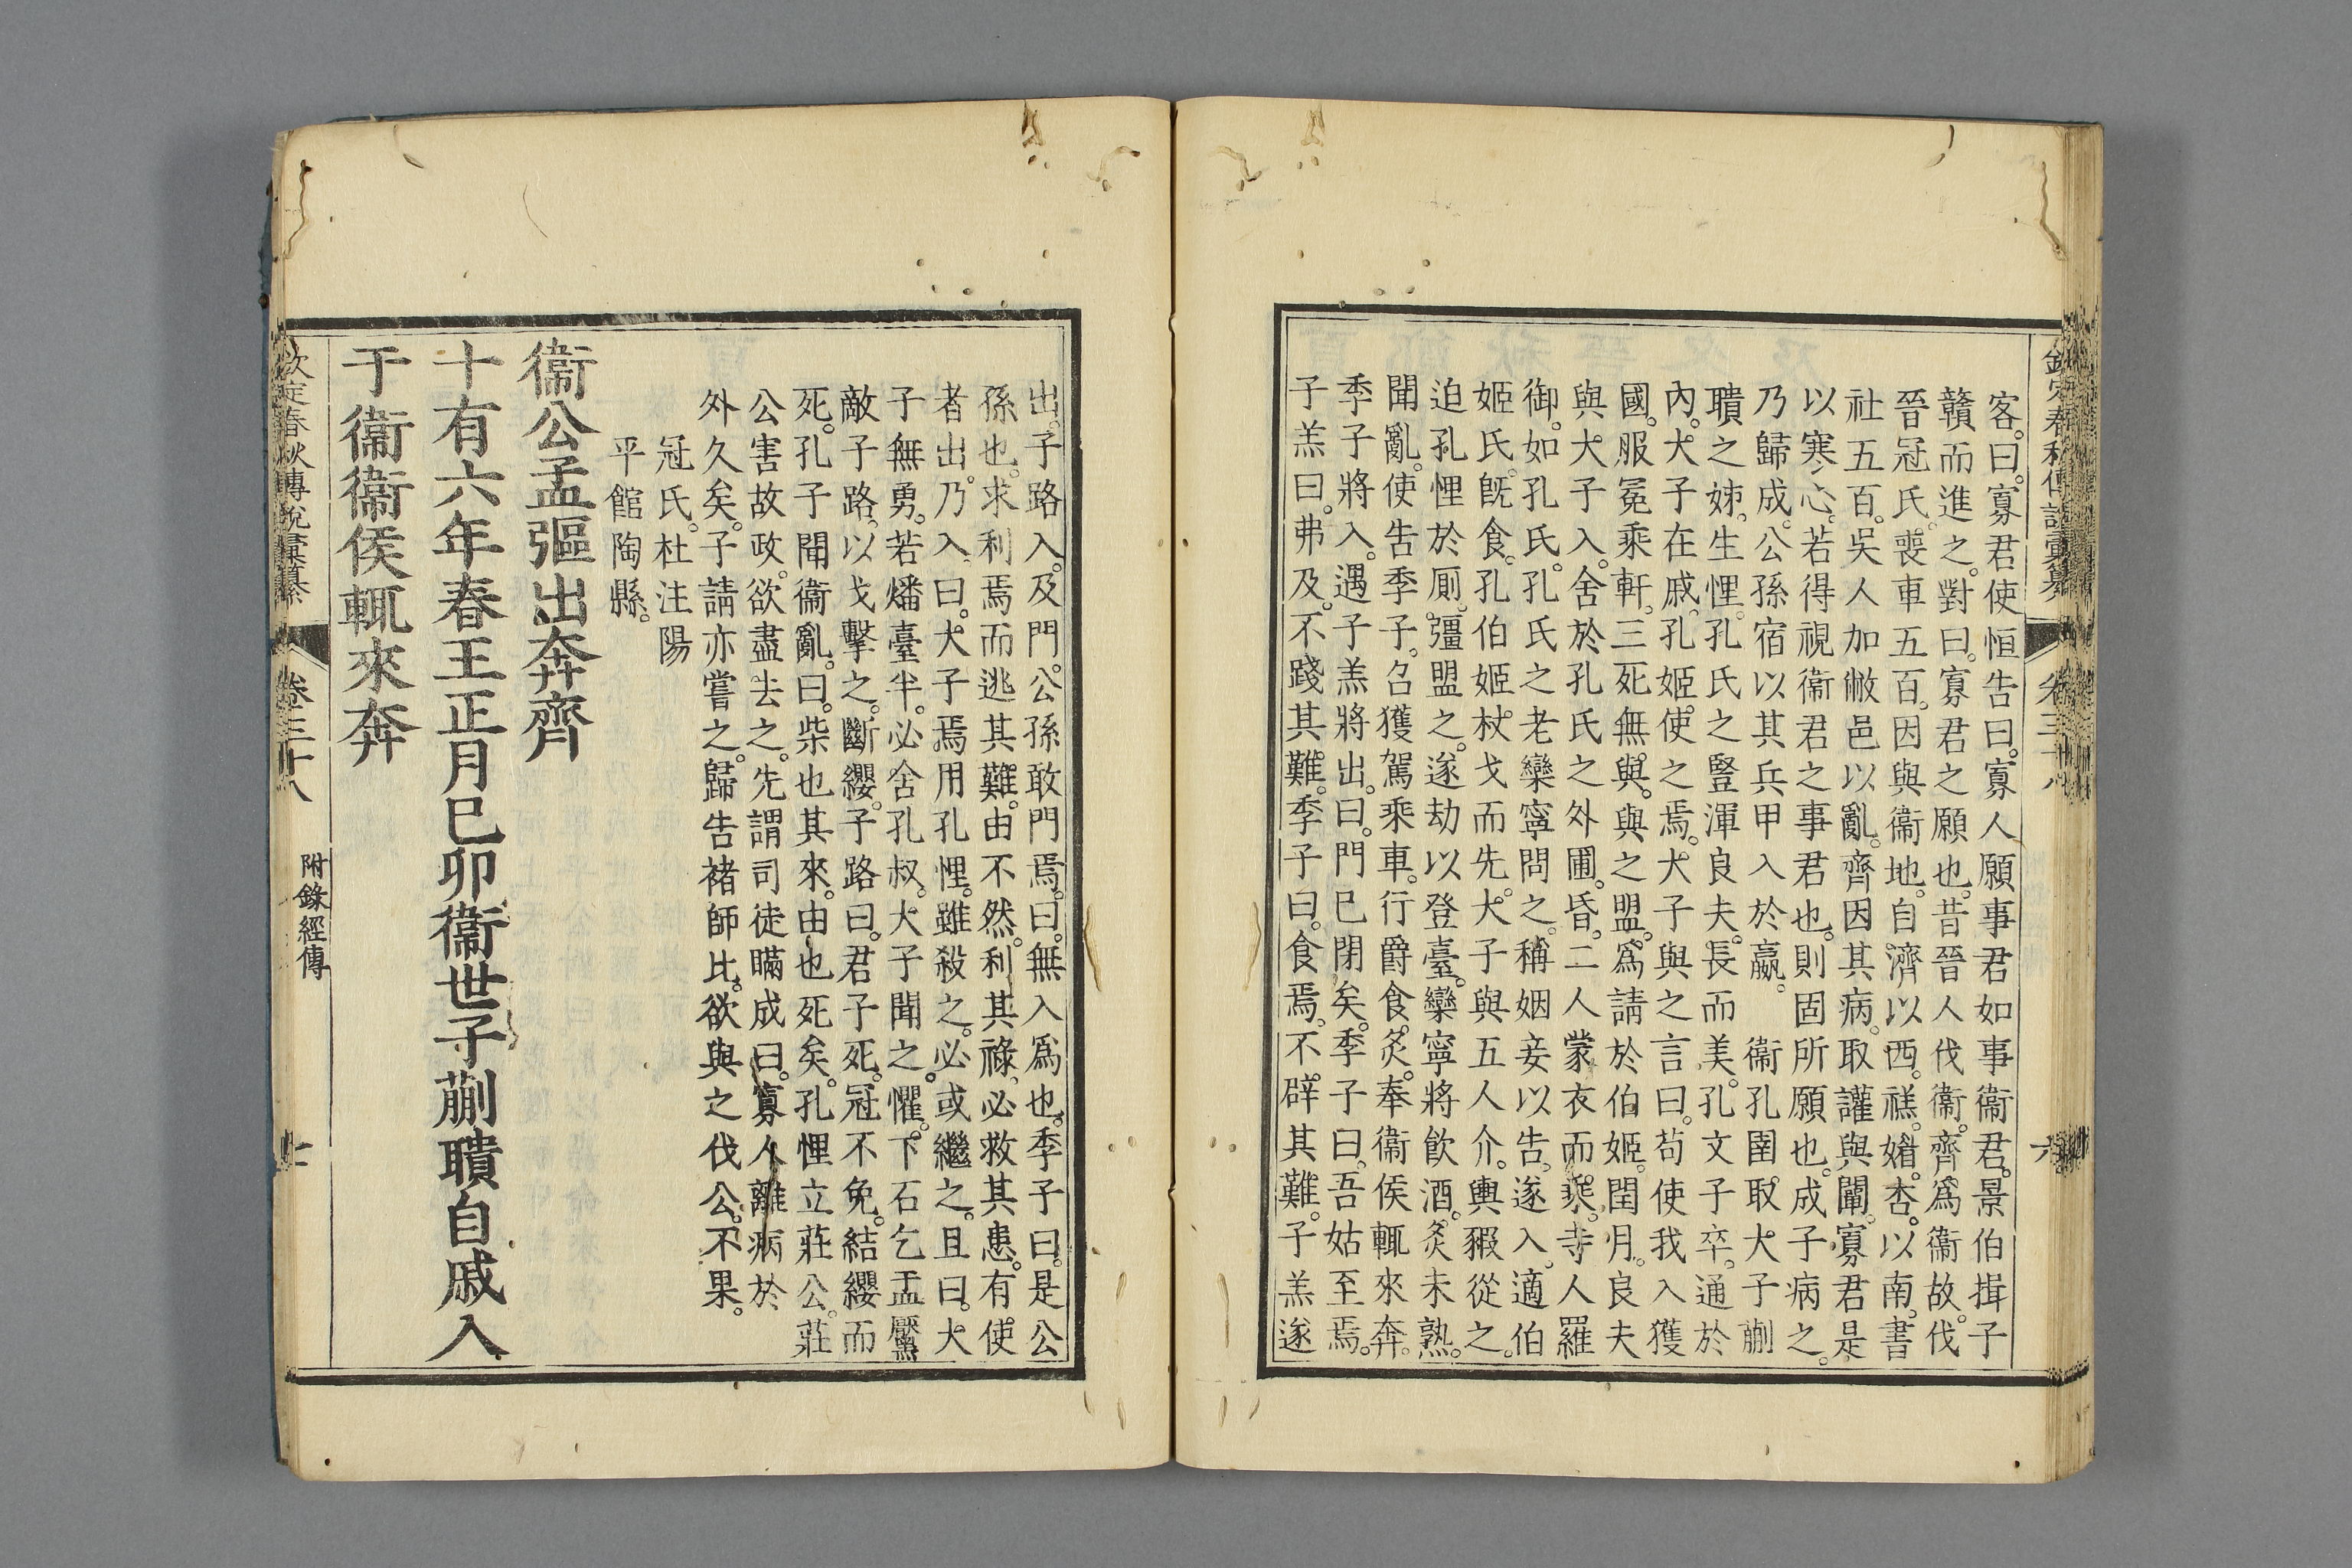 欽定春秋傳說彙纂 卷三十八 六
客。曰。寡君使恒告曰。寡人願事君如事衞君。景伯揖子
贛而進之。對曰。寡君之願也。昔晉人伐衞。齊爲衞故。伐
晉冠氏。喪車五百。因與衞地。自濟以西。禚。媚。杏。以南。書
社五百。吳人加敝邑以亂。齊因其病。取讙與闡。寡君是
以寒心。若得視衞君之事君也。則固所願也。成子病之。
乃歸成。公孫宿以其兵甲入於嬴。 衞孔圉取大子蒯
聵之姊。生悝。孔氏之豎渾良夫。長而美。孔文子卒。通於
內。大子在戚。孔姬。使之焉。大子與之言曰。苟使我入獲
國。服冕乘軒。三死無與。與之盟。爲請於伯姬。閏月。良夫
與大子入。舍於孔氏之外圃。昏。二人蒙衣而乘。寺人羅
御。如孔氏。孔氏之老欒寧問之。稱姻妾以告。遂入。適伯
姬氏。旣食。孔伯姬。杖戈而先。大子與五人介。輿豭從之。
迫孔悝於厠。彊盟之。遂劫以登臺。欒寧將飮酒。炙未熟。
聞亂。使告季子。召獲駕乘車。行爵食炙。奉衞侯輒來奔。
季子將入。遇子羔將出。曰。門已閉矣。季子曰。吾姑至焉。
子羔曰。弗及。不踐其難。季子曰。食焉。不辟其難。子羔遂
出。子路入。及門。公孫敢門焉。曰。無入爲也。季子曰。是公
孫也。求利焉而逃其難。由不然。利其祿。必救其患。有使
者出。乃入。曰。大子焉用孔悝。雖殺之。必或繼之。且曰。大
子無勇。若燔臺半。必舍孔叔。大子聞之。懼。下石乞盂黶
敵子路。以戈擊之。斷纓。子路曰。君子死。冠不免。結纓而
死。孔子聞衞亂。曰。柴也其來。由也死矣。孔悝立莊公。莊
公害故政。欲盡去之。先謂司徒瞞成曰。寡人離病於
外久矣。子請亦嘗之。歸告褚師比。欲與之伐公。不果。
冠氏。杜注陽
平館陶縣。
衞公孟彄出奔齊
十有六年春王正月已卯衞世子蒯聵自戚入
于衞衞侯輒來奔
欽定春秋傳說彙纂 卷三十八 附錄經傳 七